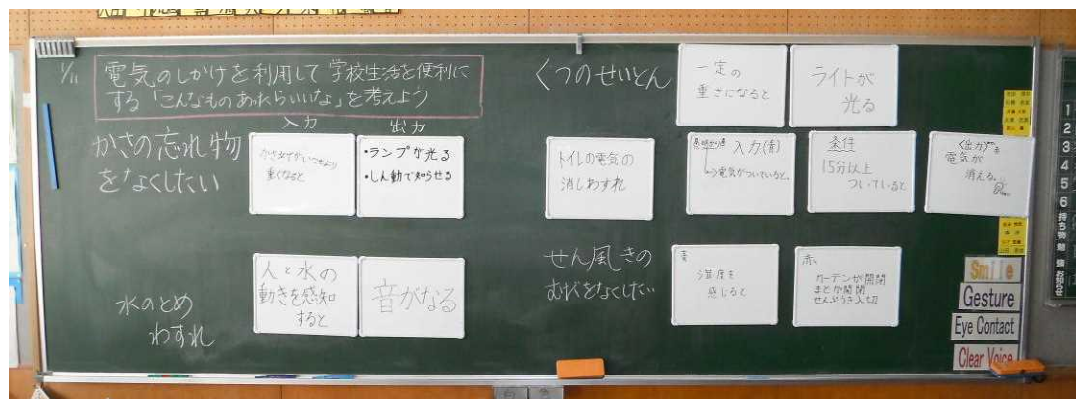 1/11
電気のしかけを利用して学校生活を便利に
する「こんなものあったらいいな」を考えよう
入力
出力
かさの忘れ物
をなくしたい
重くなると
・ランプが光る
・しん動で知らせる
水のとめ
わすれ
人と水の
動きを感知
すると
音がなる
くつのせいとん
一定の
重さになると
ライトが
光る
トイレの電気の
消しわすれ
入力(青)
→電気がついていると、
条件
15分以上
ついていると
電気が
消える。
せん風きの
むだをなくしたい
青
温度を
感じると
赤
カーテンが開閉
まどが開閉
せんぷうき入切
Smile
Gesture
Eye Contact
Clear Voice
1
2
3
4
5
6
持ち物
宿題
お知らせ